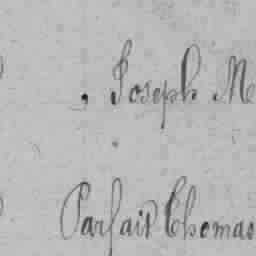 , Joseph Me
Parfait Thomas